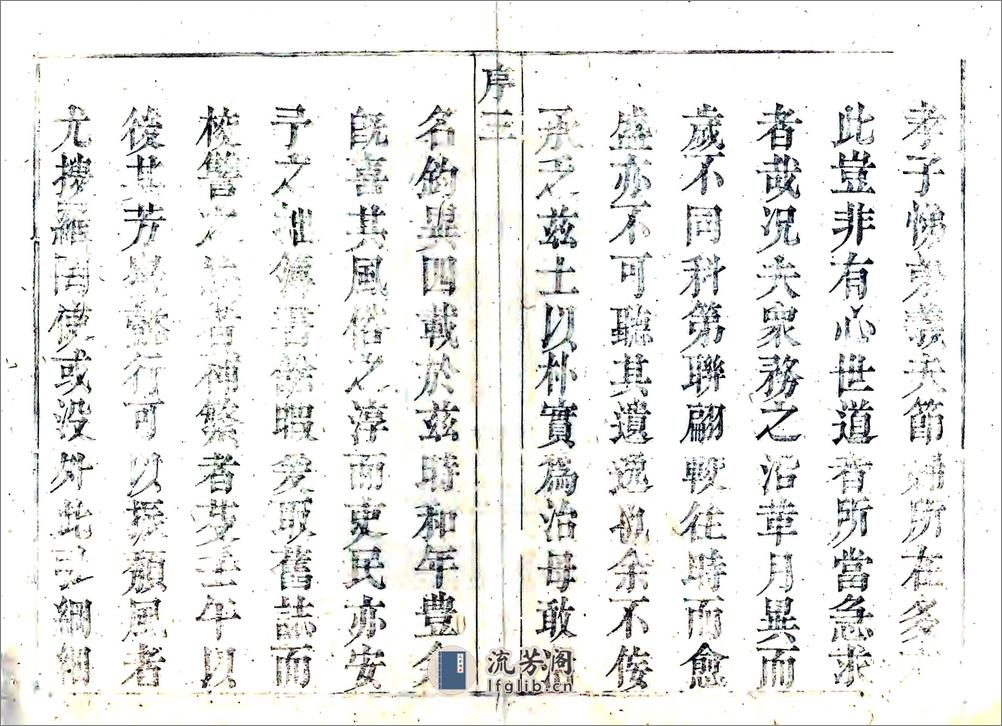 孝子悌弟義夫節婦所在多
此豈非有心世道者所當急求
者哉况夫衆務之沿革月異而
歲不同科第聯翩較往時而愈
盛亦不可聽其遺逸也余不佞
承乏兹土以朴實爲治毋敢
序三
名鈞異四載於兹時和年豊
旣喜其風俗之淳而吏民亦安
予之拙簿書餘暇爰取舊誌而
校讐之 者補繁者芟壬午以
後其芳 懿行可以振頽風者
尤搜羅 使或没外此 綱細
流芳阁
lfglib.cn